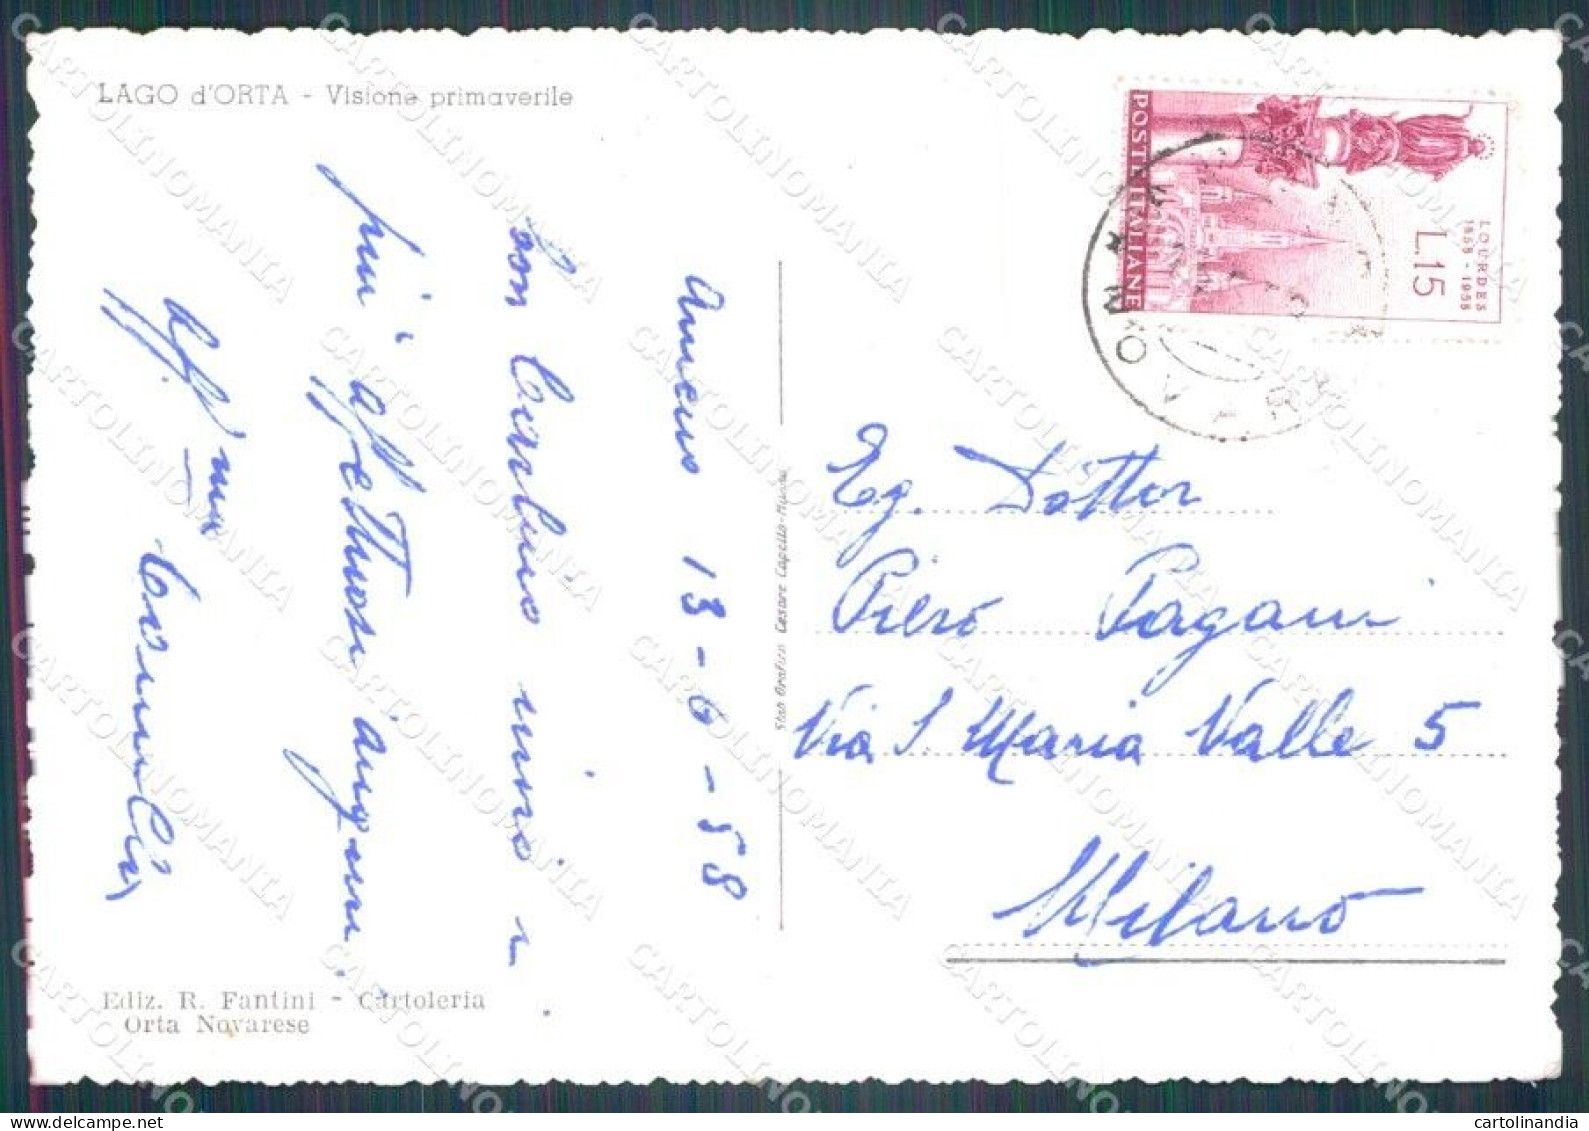 LAGO d'ORTA - Visione primaverile
13-6-58
più affettuosi auguri.
Ediz. R. Fantini - Cartoleria
Orta Novarese
Stab. Grafico Cesare Capello - Milano
POSTE ITALIANE
LOURDES
1858 - 1958
L.15
NOVARA
Eg. Dottor
Piero Pagani
Via S Maria Valle 5
Milano
CARTOLINOMANIA
cartolinandia